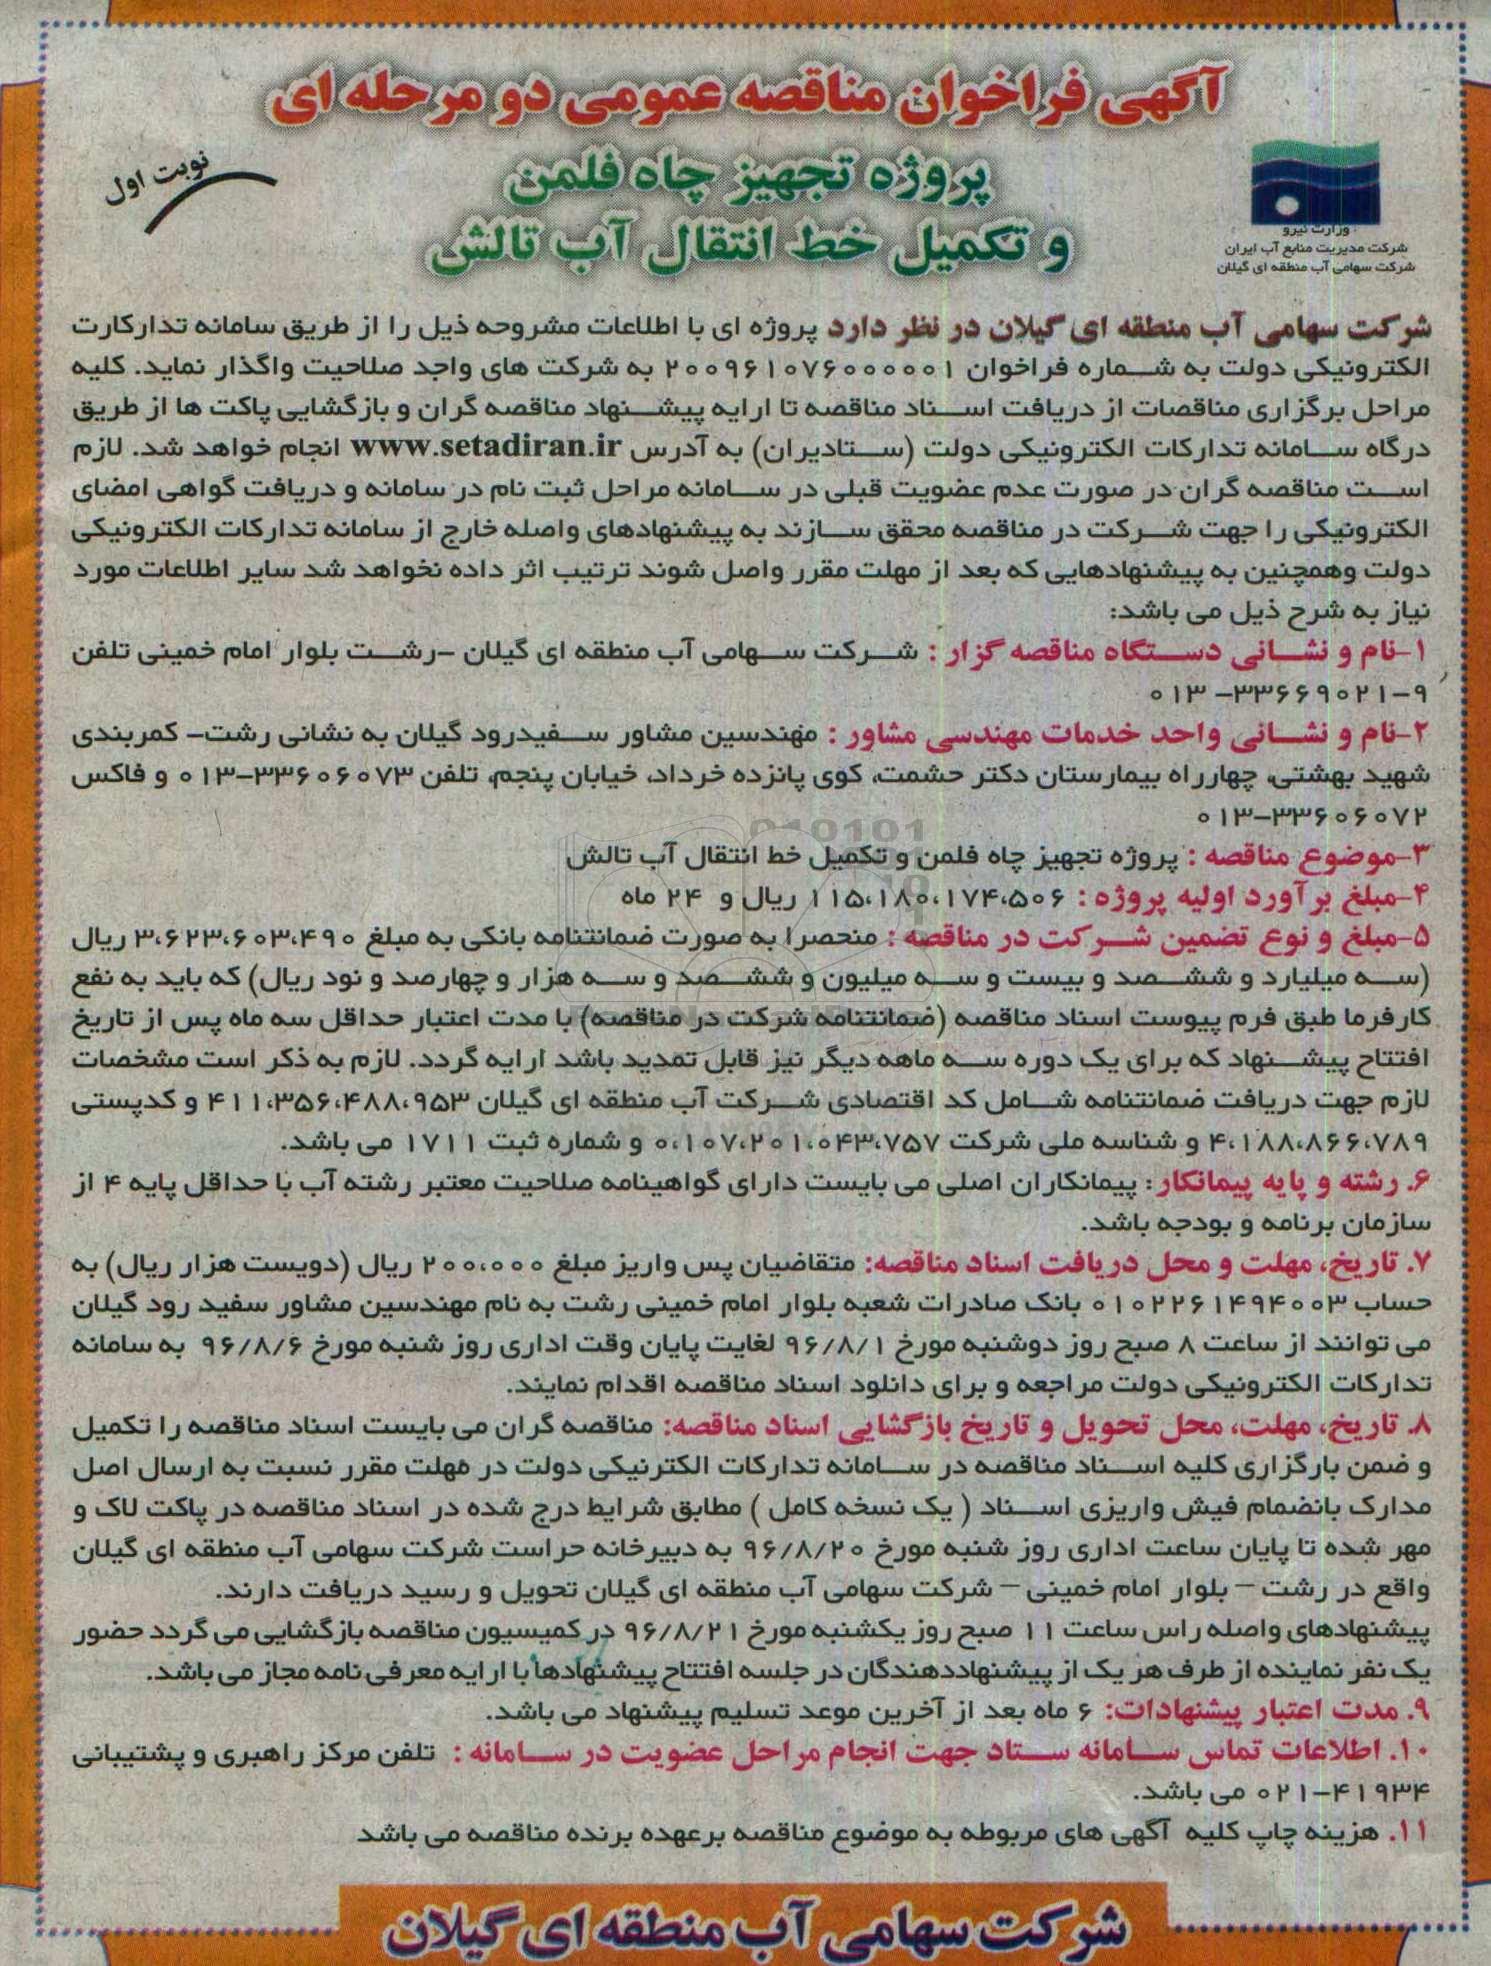 آگهی فراخوان مناقصه عمومی دو مرحله ای
پروژه تجهیز چاه فلمن
و تکمیل خط انتقال آب تالش
نوبت اول
وزارت نیرو
شرکت مدیریت منابع آب ایران
شرکت سهامی آب منطقه ای گیلان
شرکت سهامی آب منطقه ای گیلان در نظر دارد پروژه ای با اطلاعات مشروحه ذیل را از طریق سامانه تدارکارت
الکترونیکی دولت به شماره فراخوان ۲۰۰۹۶۱۰۷۶۰۰۰۰۰۱ به شرکت های واجد صلاحیت واگذار نماید. کلیه
مراحل برگزاری مناقصات از دریافت اسناد مناقصه تا ارایه پیشنهاد مناقصه گران و بازگشایی پاکت ها از طریق
درگاه سامانه تدارکات الکترونیکی دولت (ستادیران) به آدرس www.setadiran.ir انجام خواهد شد. لازم
است مناقصه گران در صورت عدم عضویت قبلی در سامانه مراحل ثبت نام در سامانه و دریافت گواهی امضای
الکترونیکی را جهت شرکت در مناقصه محقق سازند به پیشنهادهای واصله خارج از سامانه تدارکات الکترونیکی
دولت وهمچنین به پیشنهادهایی که بعد از مهلت مقرر واصل شوند ترتیب اثر داده نخواهد شد سایر اطلاعات مورد
نیاز به شرح ذیل می باشد:
۱-نام و نشانی دستگاه مناقصه گزار : شرکت سهامی آب منطقه ای گیلان -رشت بلوار امام خمینی تلفن
۹-۳۳۶۶۹۰۲۱- ۰۱۳
۲-نام و نشانی واحد خدمات مهندسی مشاور : مهندسین مشاور سفیدرود گیلان به نشانی رشت- کمربندی
شهید بهشتی، چهارراه بیمارستان دکتر حشمت، کوی پانزده خرداد، خیابان پنجم، تلفن ۳۳۶۰۶۰۷۳-۰۱۳ و فاکس
۳۳۶۰۶۰۷۲-۰۱۳
۳-موضوع مناقصه : پروژه تجهیز چاه فلمن و تکمیل خط انتقال آب تالش
۴-مبلغ برآورد اولیه پروژه : ۱۱۵،۱۸۰،۱۷۴،۵۰۶ ریال و ۲۴ ماه
۵-مبلغ و نوع تضمین شرکت در مناقصه : منحصرا به صورت ضمانتنامه بانکی به مبلغ ۳،۶۲۳،۶۰۳،۴۹۰ ریال
(سه میلیارد و ششصد و بیست و سه میلیون و ششصد و سه هزار و چهارصد و نود ریال) که باید به نفع
کارفرما طبق فرم پیوست اسناد مناقصه (ضمانتنامه شرکت در مناقصه) با مدت اعتبار حداقل سه ماه پس از تاریخ
افتتاح پیشنهاد که برای یک دوره سه ماهه دیگر نیز قابل تمدید باشد ارایه گردد. لازم به ذکر است مشخصات
لازم جهت دریافت ضمانتنامه شامل کد اقتصادی شرکت آب منطقه ای گیلان ۴۱۱،۳۵۶،۴۸۸،۹۵۳ و کدپستی
۴،۱۸۸،۸۶۶،۷۸۹ و شناسه ملی شرکت ۰،۱۰۷،۲۰۱،۰۴۳،۷۵۷ و شماره ثبت ۱۷۱۱ می باشد.
۶. رشته و پایه پیمانکار: پیمانکاران اصلی می بایست دارای گواهینامه صلاحیت معتبر رشته آب با حداقل پایه ۴ از
سازمان برنامه و بودجه باشد.
۷. تاریخ، مهلت و محل دریافت اسناد مناقصه: متقاضیان پس واریز مبلغ ۲۰۰،۰۰۰ ریال (دویست هزار ریال) به
حساب ۰۱۰۲۲۶۱۴۹۴۰۰۳ بانک صادرات شعبه بلوار امام خمینی رشت به نام مهندسین مشاور سفید رود گیلان
می توانند از ساعت ۸ صبح روز دوشنبه مورخ ۹۶/۸/۱ لغایت پایان وقت اداری روز شنبه مورخ ۹۶/۸/۶ به سامانه
تدارکات الکترونیکی دولت مراجعه و برای دانلود اسناد مناقصه اقدام نمایند.
۸. تاریخ، مهلت، محل تحویل و تاریخ بازگشایی اسناد مناقصه: مناقصه گران می بایست اسناد مناقصه را تکمیل
و ضمن بارگزاری کلیه اسناد مناقصه در سامانه تدارکات الکترنیکی دولت در مهلت مقرر نسبت به ارسال اصل
مدارک بانضمام فیش واریزی اسناد ( یک نسخه کامل ) مطابق شرایط درج شده در اسناد مناقصه در پاکت لاک و
مهر شده تا پایان ساعت اداری روز شنبه مورخ ۹۶/۸/۲۰ به دبیرخانه حراست شرکت سهامی آب منطقه ای گیلان
واقع در رشت – بلوار امام خمینی – شرکت سهامی آب منطقه ای گیلان تحویل و رسید دریافت دارند.
پیشنهادهای واصله راس ساعت ۱۱ صبح روز یکشنبه مورخ ۹۶/۸/۲۱ در کمیسیون مناقصه بازگشایی می گردد حضور
یک نفر نماینده از طرف هر یک از پیشنهاددهندگان در جلسه افتتاح پیشنهادها با ارایه معرفی نامه مجاز می باشد.
۹. مدت اعتبار پیشنهادات: ۶ ماه بعد از آخرین موعد تسلیم پیشنهاد می باشد.
۱۰. اطلاعات تماس سامانه ستاد جهت انجام مراحل عضویت در سامانه : تلفن مرکز راهبری و پشتیبانی
۴۱۹۳۴-۰۲۱ می باشد.
۱۱. هزینه چاپ کلیه آگهی های مربوطه به موضوع مناقصه برعهده برنده مناقصه می باشد
شرکت سهامی آب منطقه ای گیلان